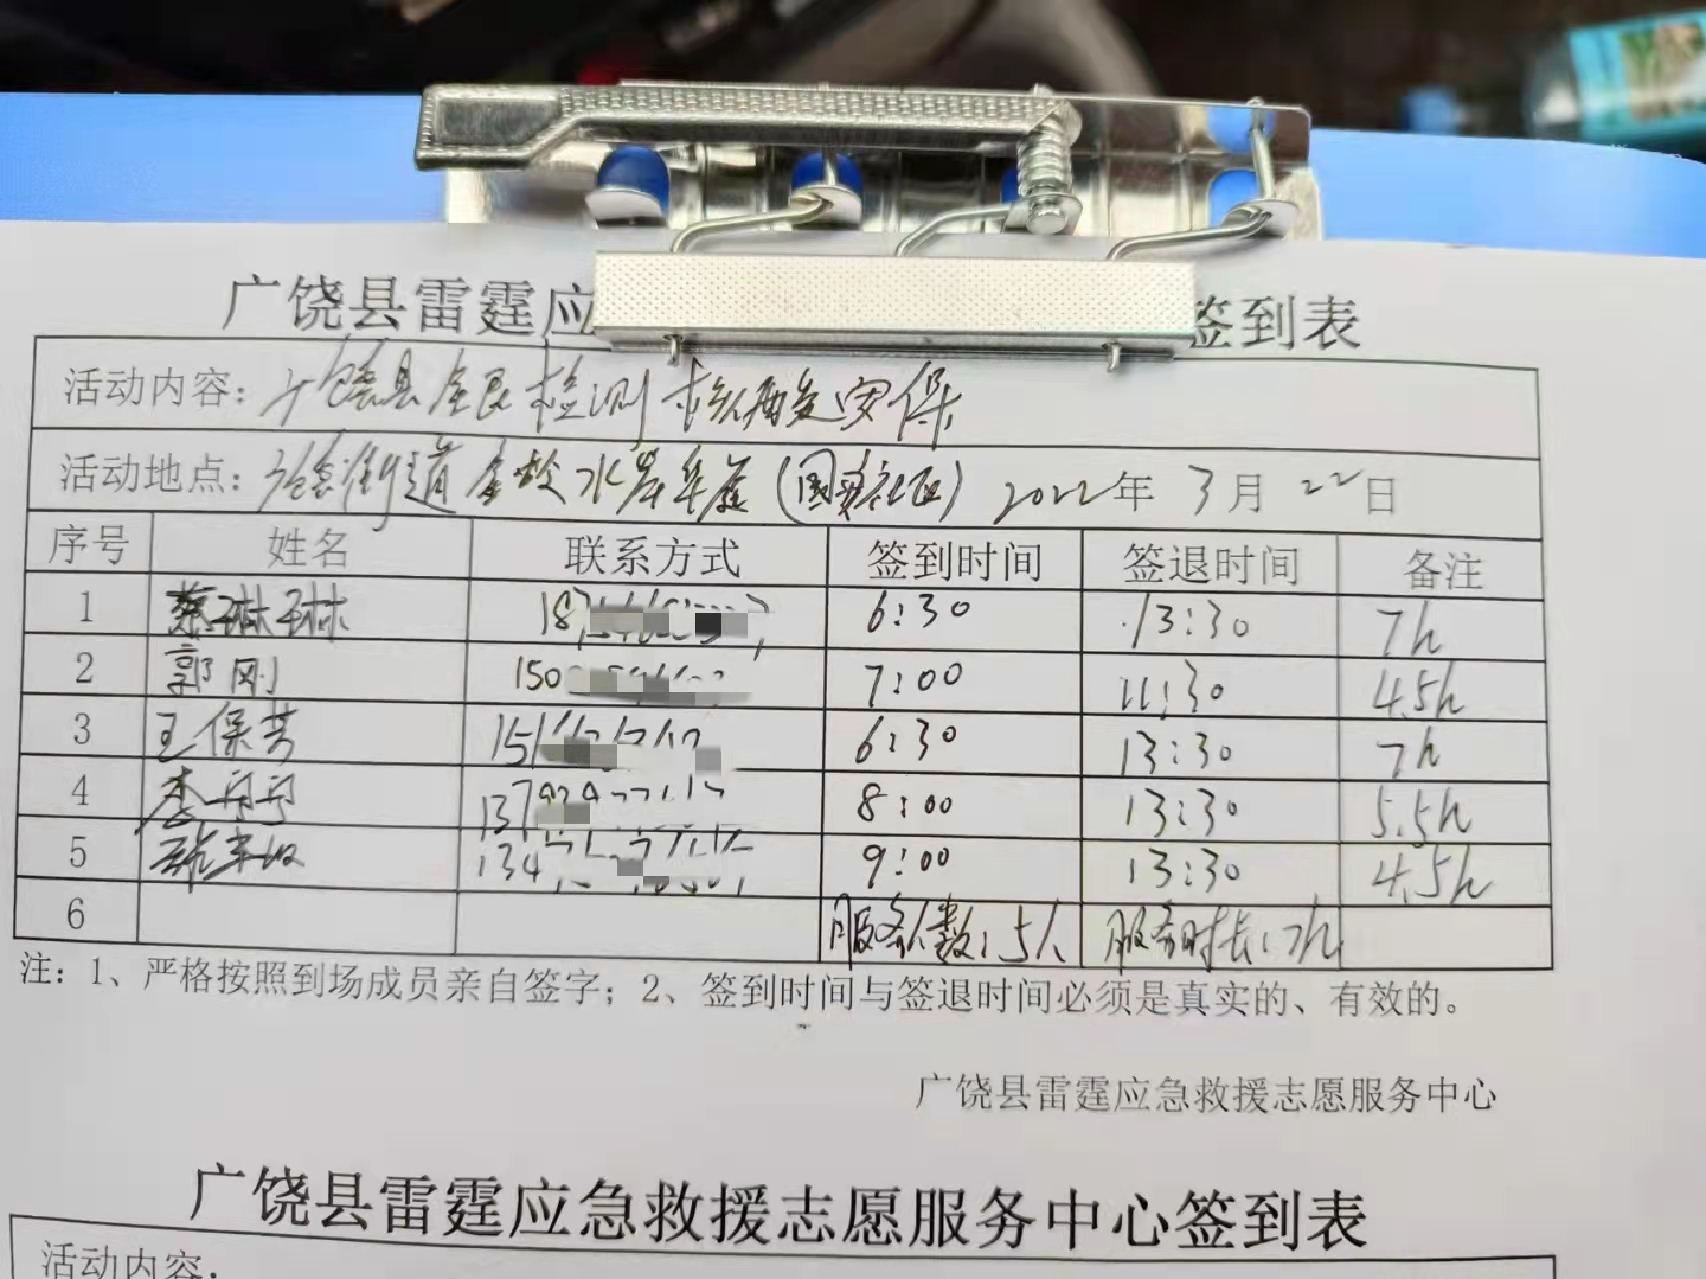 广饶县雷霆应 签到表
活动内容：广饶县全民检测核酸安保
活动地点：街道 水岸华庭（国 社区）2022年 3月 22日
序号 姓名 联系方式 签到时间 签退时间 备注
1 蔡琳琳 187 6:30 13:30 7h
2 郭刚 150 7:00 11:30 4.5h
3 王保芳 151 6:30 13:30 7h
4 李宁宁 137 8:00 13:30 5.5h
5 134 9:00 13:30 4.5h
6 服务人数：5人 服务时长：7h
注：1、严格按照到场成员亲自签字；2、签到时间与签退时间必须是真实的、有效的。
广饶县雷霆应急救援志愿服务中心
广饶县雷霆应急救援志愿服务中心签到表
活动内容：